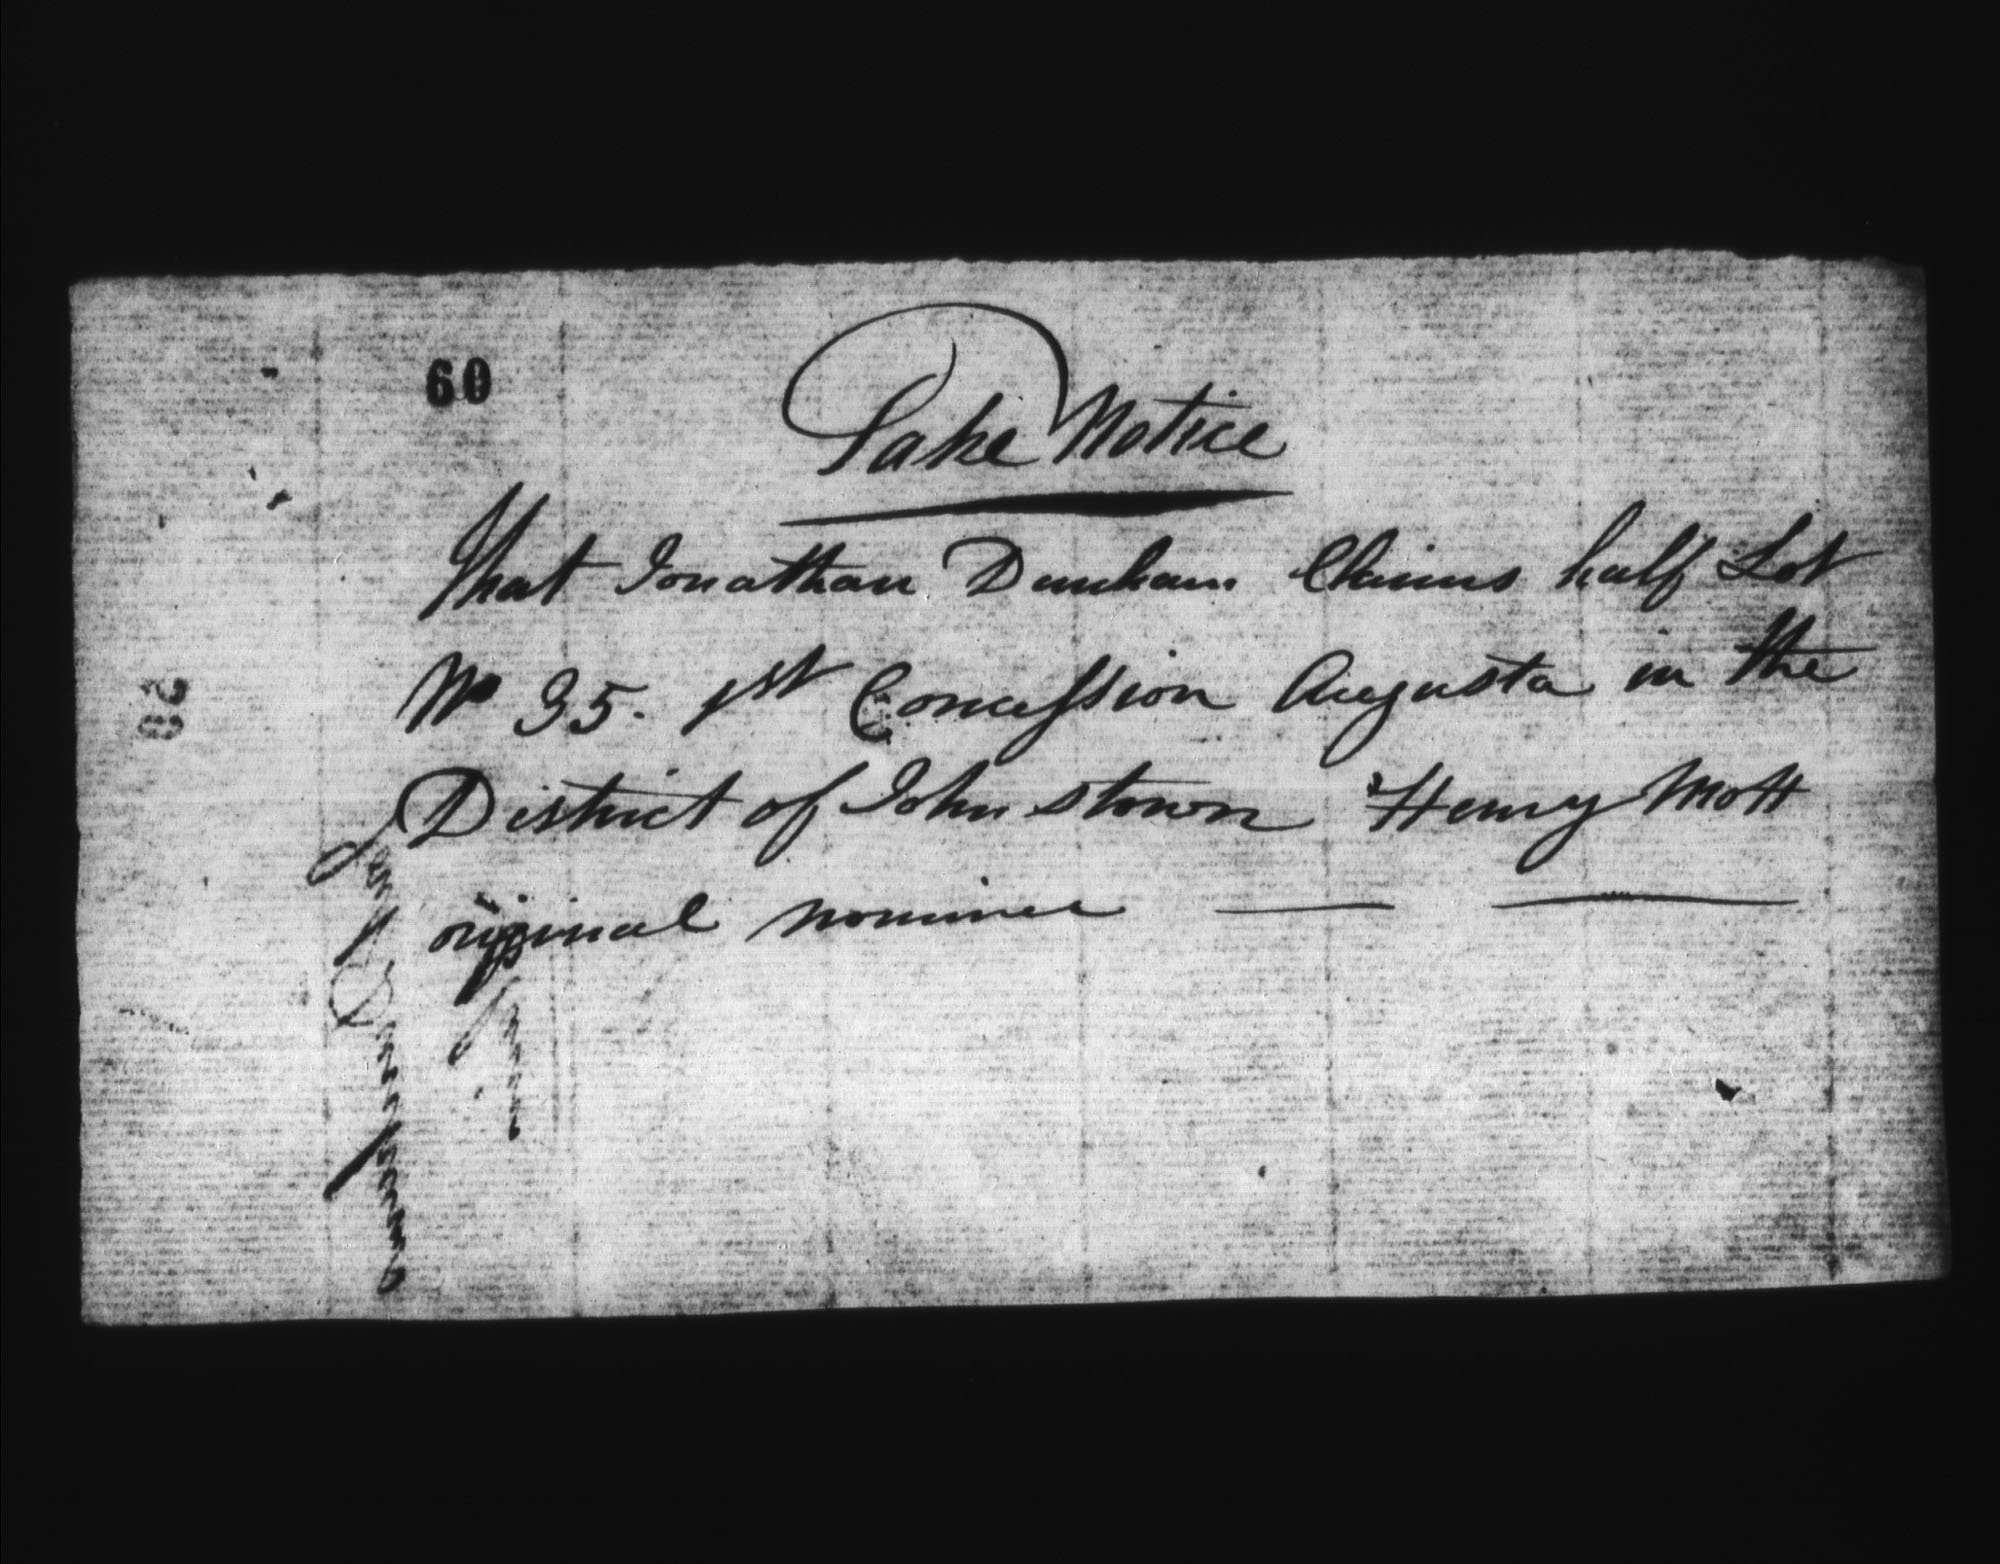 60
Take Notice
That Jonathan Dunham Claims half Lot
No 35. 1st Concession Augusta in the
District of Johnstown Henry Mott
original nominee